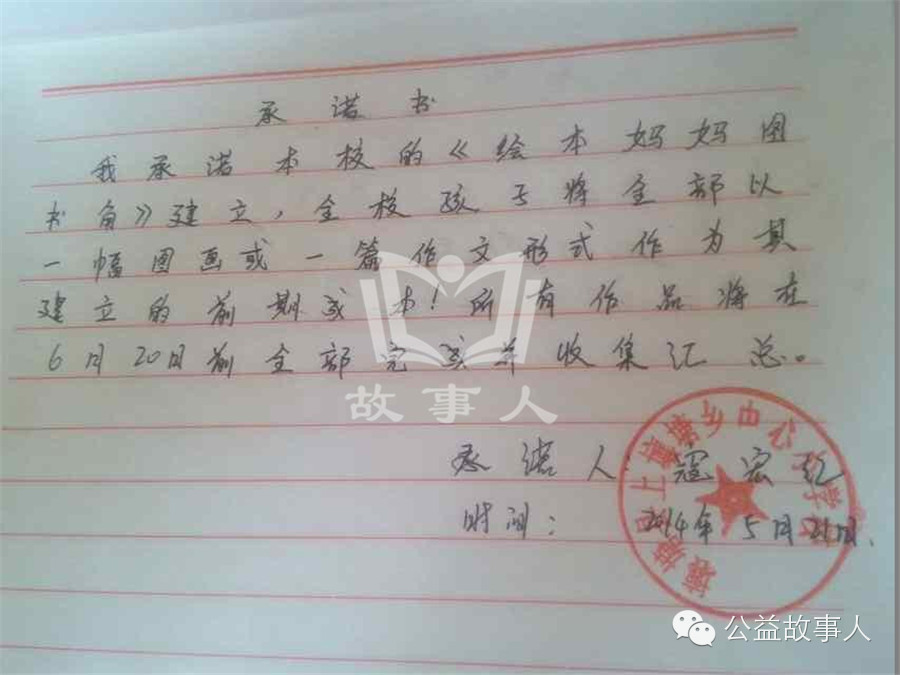 承诺书
我承诺本校的《绘本妈妈图
书角》建立，全校孩子将全部以
一幅图画或一篇作文形式作为其
建立的前期成本！所有作品将在
6月20日前全部完成并收集汇总。
故事人
承诺人 寇宏
时间：2014年5月21日.
上 塘乡中心 学
公益故事人